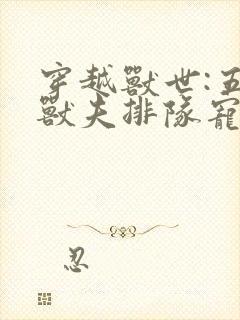 穿越獸世:五
獸夫排隊寵
忍